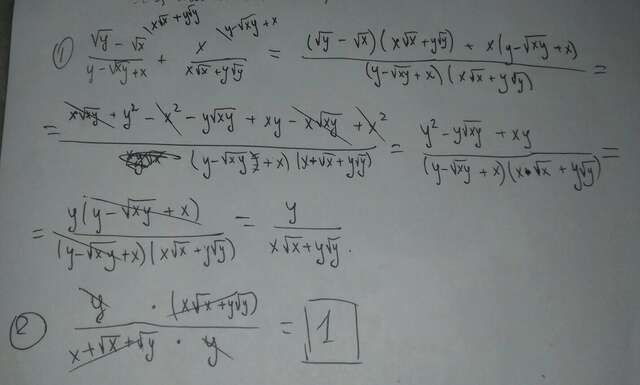 ① (√y − √x)/(y − √xy + x) + x/(x√x + y√y) = ((√y − √x)(x√x + y√y) + x(y − √xy + x))/((y − √xy + x)(x√x + y√y)) =
= (x√xy + y² − x² − y√xy + xy − x√xy + x²)/((y − √xy + x)(x+√x + y√y)) = (y² − y√xy + xy)/((y − √xy + x)(x√x + y√y)) =
= y(y − √xy + x)/((y − √xy + x)(x√x + y√y)) = y/(x√x + y√y).
② y · (x√x + y√y)/(x + √x + √y · y) = 1